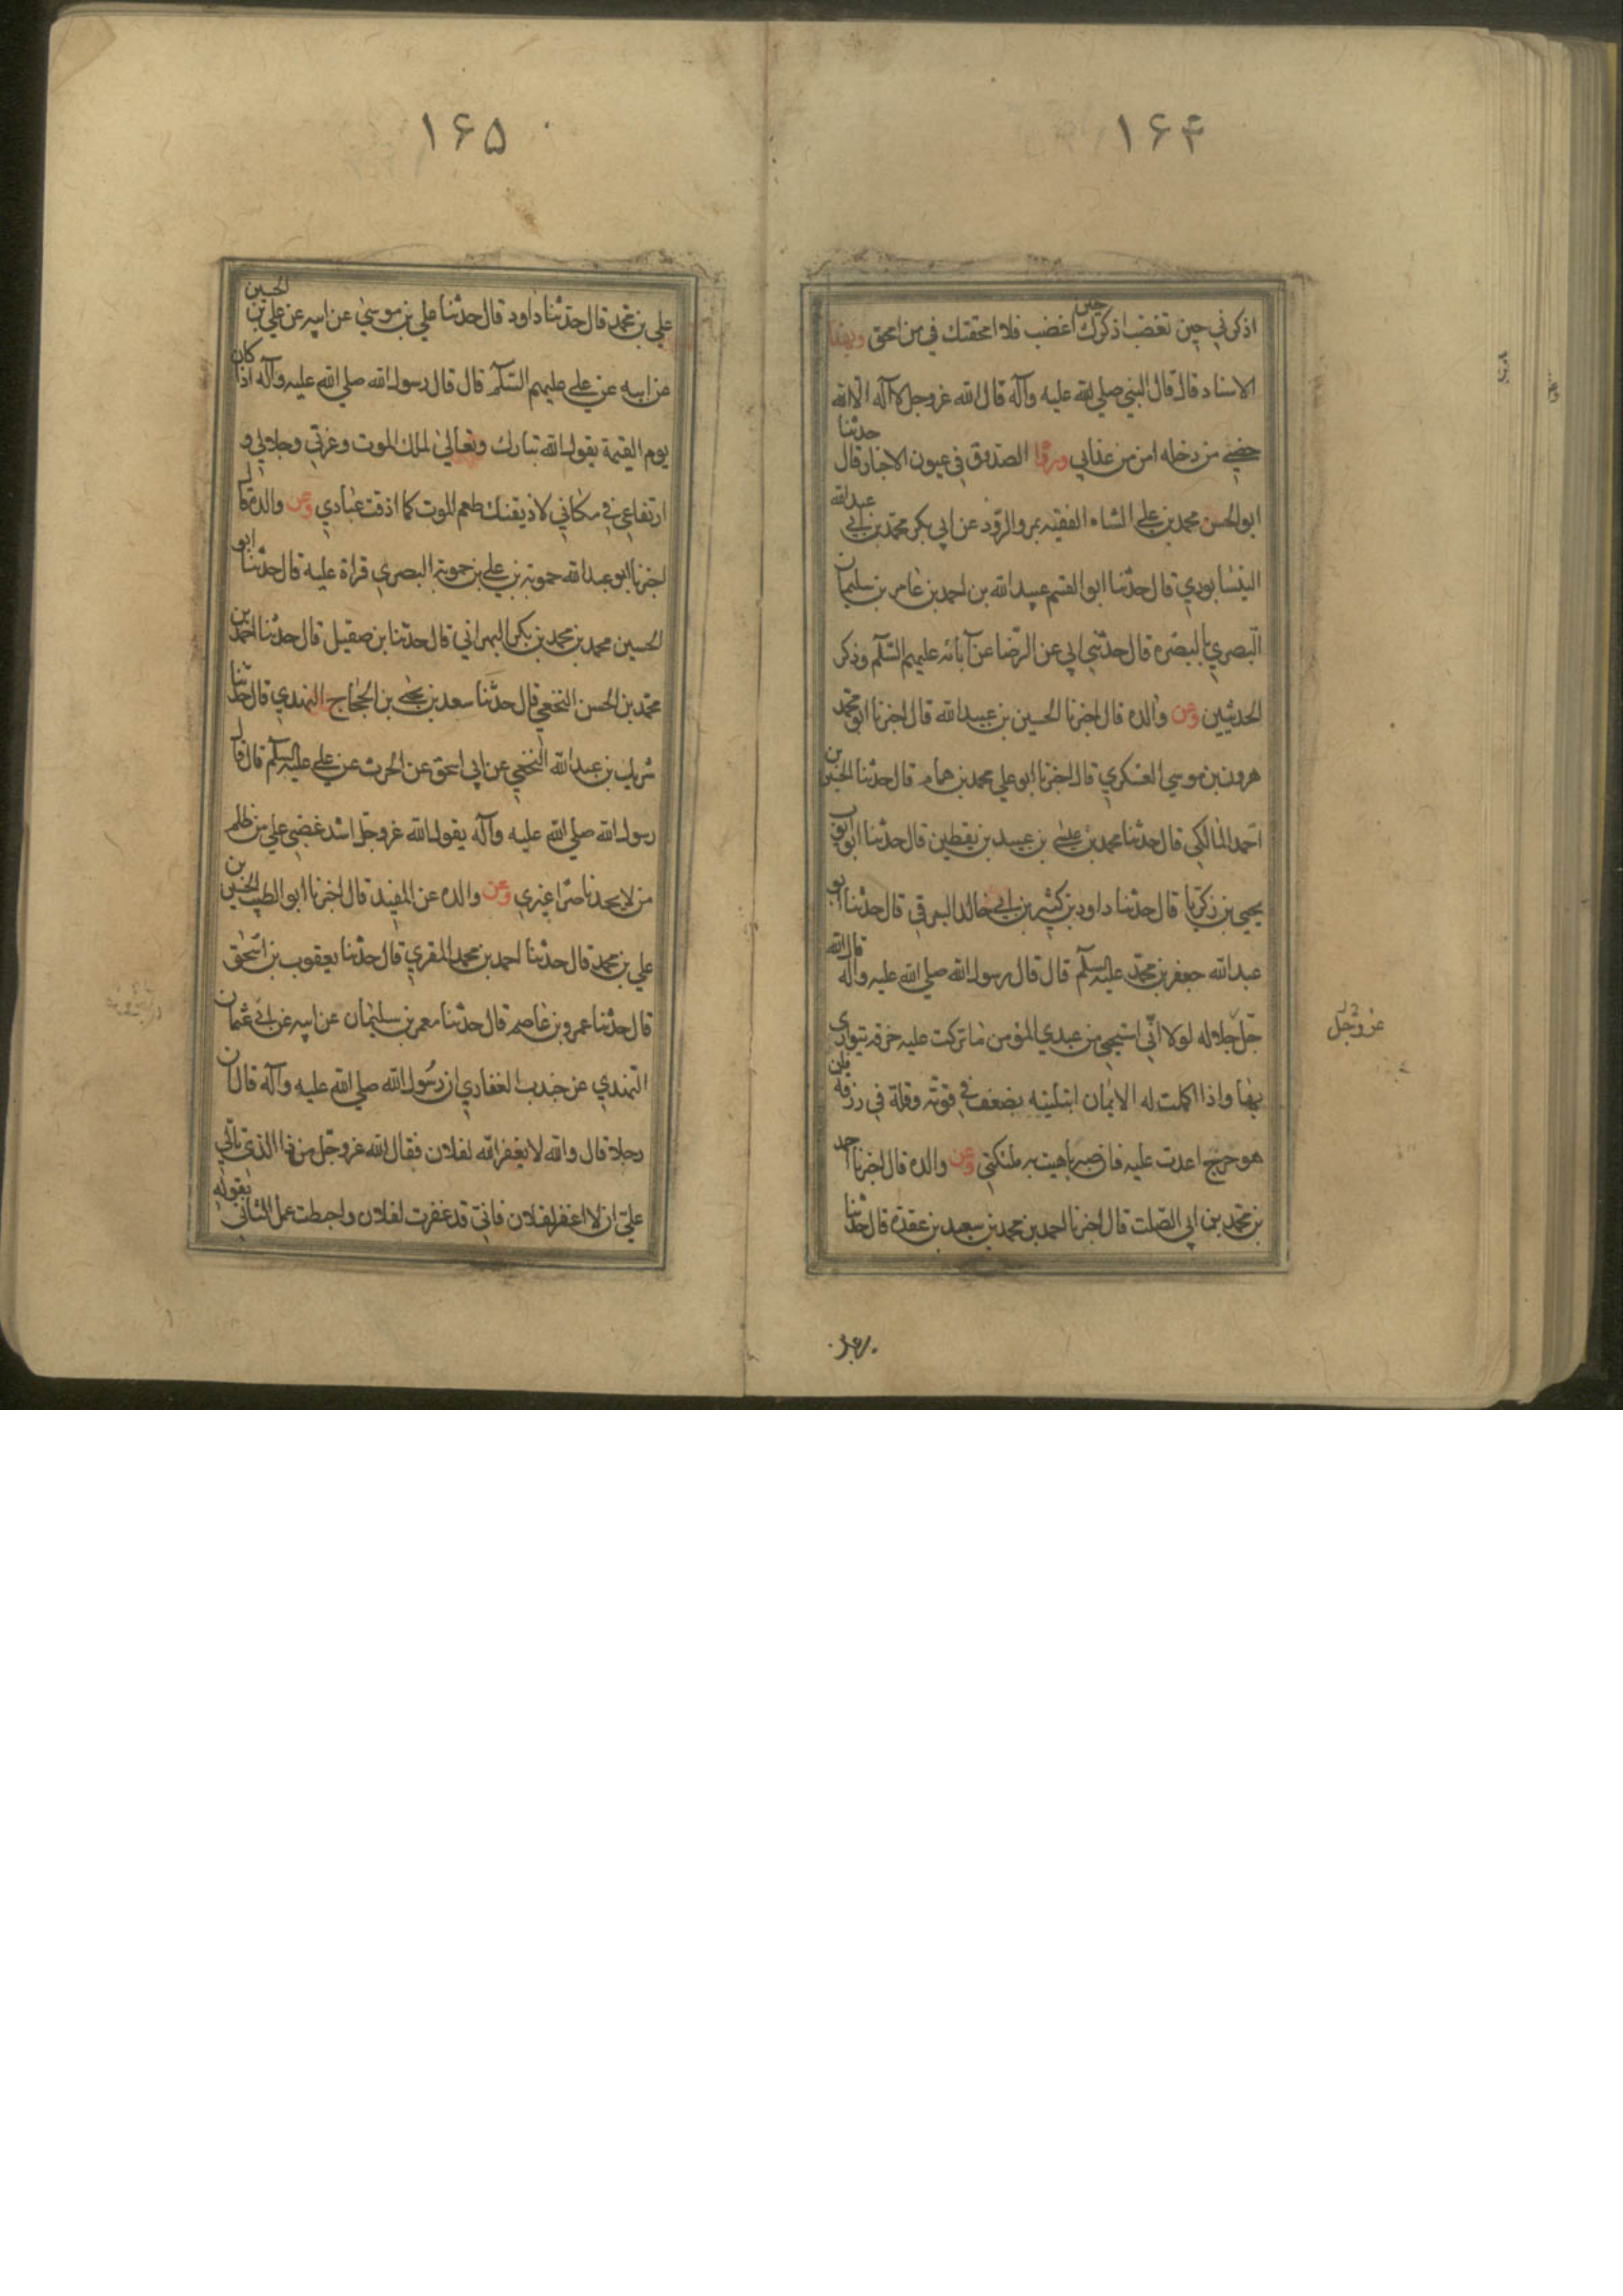 ۱۶۴
اذكرني حين تغضب اذكرك حين اغضب فلا امحقتك في من امحق وبهذا
الاسناد قال قال النبي صلي الله عليه وآله قال الله عزوجل لا آله الا الله
حصني من دخله امن من عذابي وروا الصدوق في عيون الاخبار قال حدثنا
ابوالحسن محمد بن علي الشاه الفقيه بمرو الرود عن ابي بكر محمد بن ابي عبدالله
النيسابوري قال حدثنا ابو القسم عبيد الله بن احمد بن عامر بن سليمان
البصري بالبصره قال حدثني ابي عن الرضا عن آبائه عليهم السلم وذكر
الحديثين وعن والده قال اخبرنا الحسين بن عبيد الله قال اخبرنا ابو محمد
هرون بن موسي العسكري قال اخبرنا ابو علي محمد بن همام قال حدثنا الحسين بن
احمد المالكي قال حدثنا محمد بن عيسي بن عبيد بن يقطين قال حدثنا ابو ايوب
يحيي بن زكريا قال حدثنا داود بن كثير بن ابي خالد البرقي قال حدثنا ابو
عبدالله جعفر بن محمد عليه السلم قال قال رسول الله صلي الله عليه وآله قال الله
جل جلاله لولا اني استحيي من عبدي المؤمن ما تركت عليه خرقه يتواري
عزوجل
بها واذا اكملت له الايمان ابتليته بضعف في قوته وقلة في رزقه فان
هو حرج اعدت عليه فان صبر باهيت به ملئكتي وعن والده قال اخبرنا احمد
بن محمد بن ابي الصلت قال اخبرنا احمد بن محمد بن سعيد بن عقده قال حدثنا
۱۶۵
علي بن محمد قال حدثنا داود قال حدثنا علي بن موسي عن ابيه عن علي بن الحسين
عن ابيه عن علي عليهم السلم قال قال رسول الله صلي الله عليه وآله اذا كان
يوم القيمة يقول الله تبارك وتعالي لملك الموت وعزتي وجلالي و
ارتفاعي في مكاني لاذيقنك طعم الموت كما اذقت عبادي وعن والده قال
اخبرنا ابو عبدالله حمويه بن علي بن حمويه البصري قراة عليه قال حدثنا ابو
الحسين محمد بن محمد بن بكر الهراني قال حدثنا بن صقيل قال حدثنا احمد بن
محمد بن الحسن النخعي قال حدثنا سعد بن يحيي بن الحجاج النهدي قال حدثنا
شريك بن عبد الله النخعي عن ابي اسحق عن الحرث عن علي عليه السلم قال قال
رسول الله صلي الله عليه وآله يقول الله عزوجل اشد غضبي علي من ظلم
من لا يجد ناصرا غيري وعن والده عن المفيد قال اخبرنا ابو الطيب الحسين بن
علي بن محمد قال حدثنا احمد بن محمد المقري قال حدثنا يعقوب بن اسحق
قال حدثنا عمرو بن عاصم قال حدثنا معمر بن سليمان عن ابيه عن ابي عثمان
النهدي عن جندب الغفاري ان رسول الله صلي الله عليه وآله قال ان
رجلا قال والله لا يغفر الله لفلان فقال الله عزوجل من ذا الذي تالي
علي ان لا اغفر لفلان فاني قد غفرت لفلان واحبطت عمل الثاني بقوله